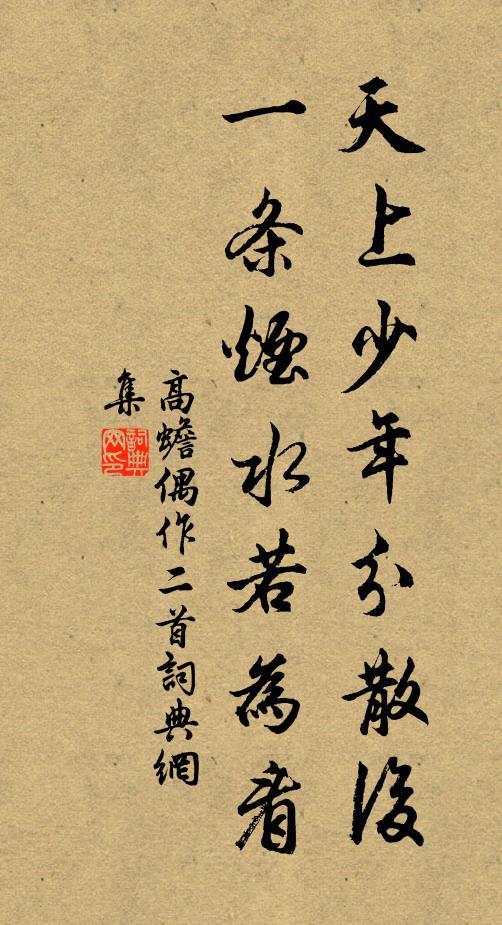 天上少年分散後
一条煙水若為看
高蟾偶作二首詞典網
集
詞典網印